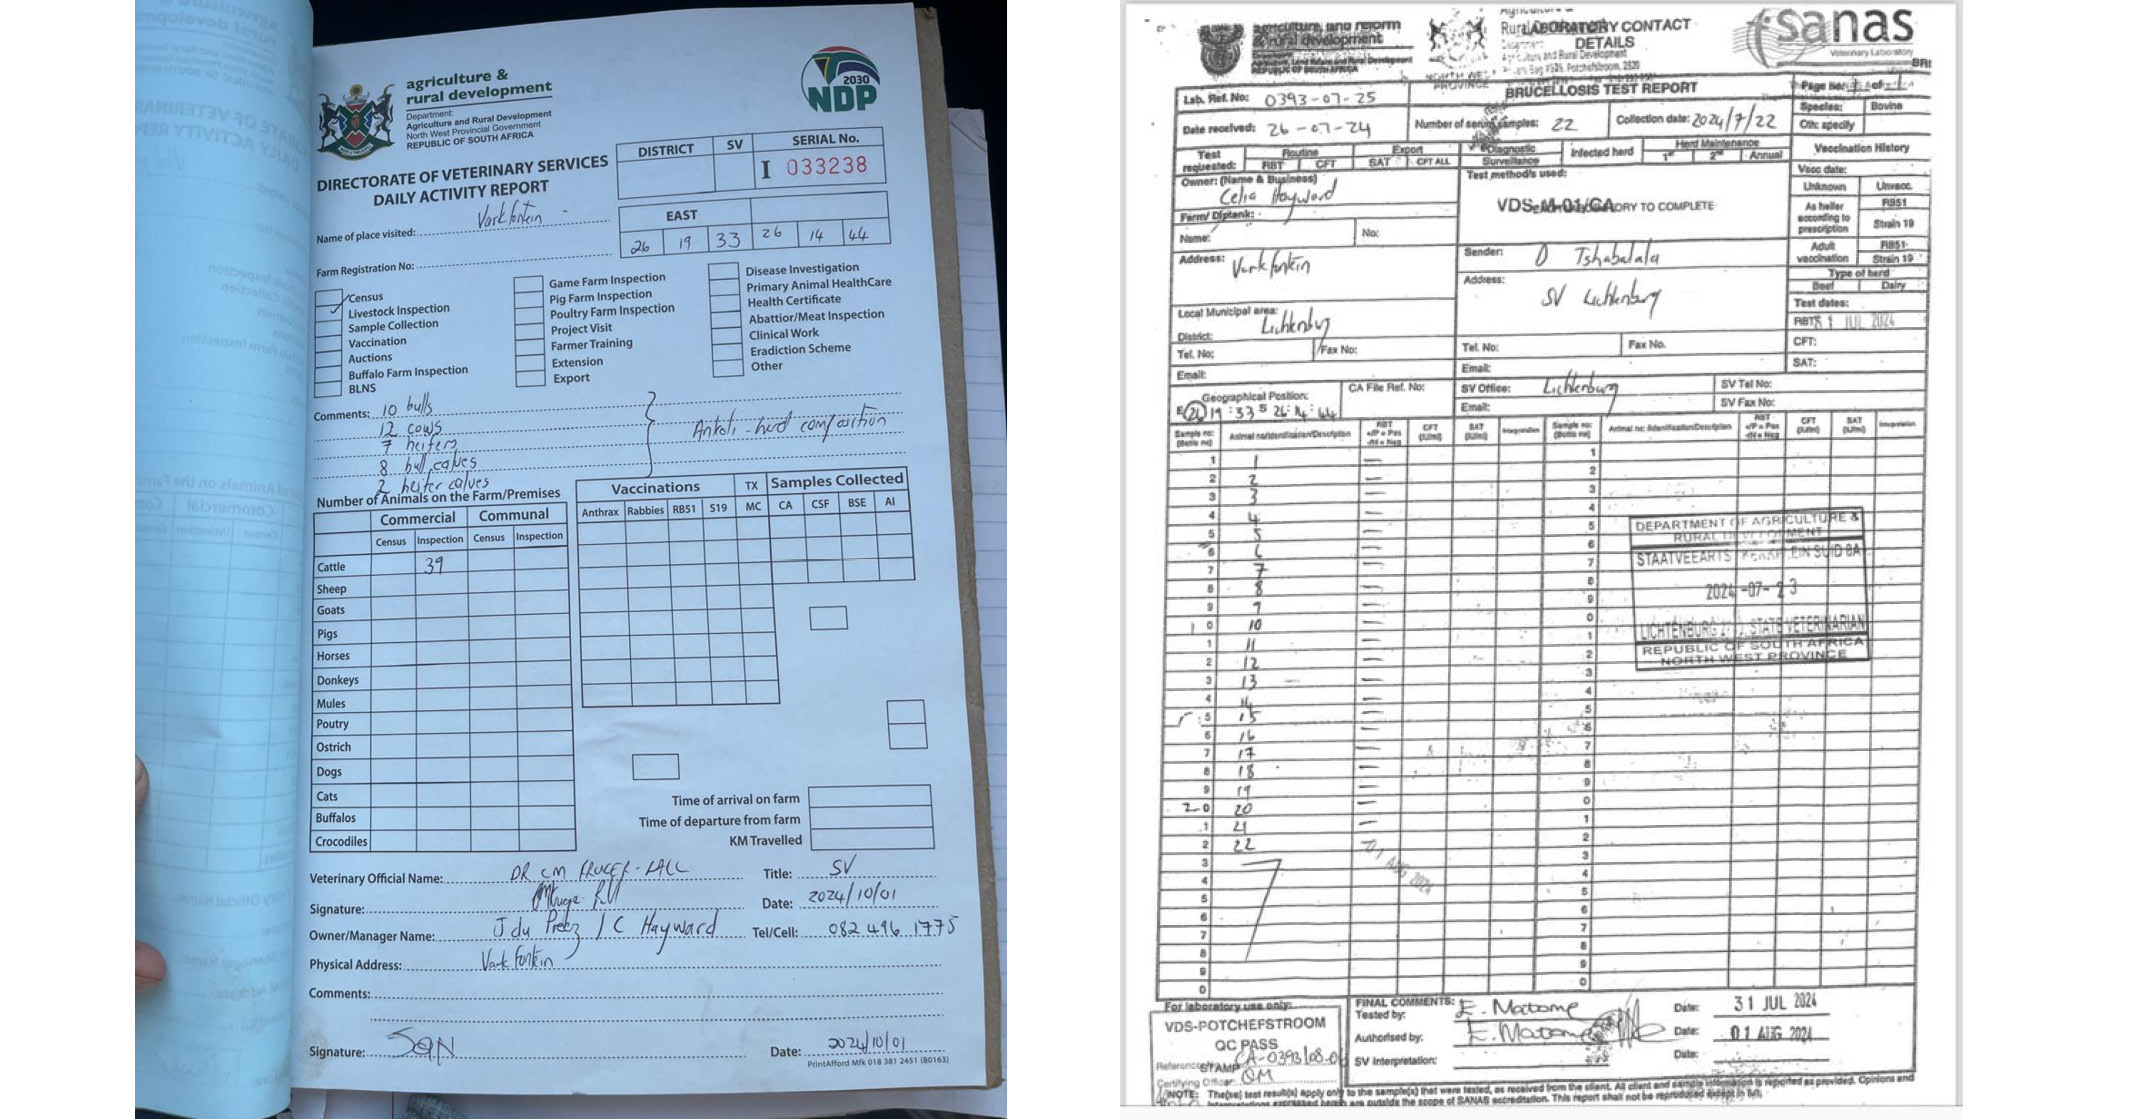 agriculture &
rural development
Department:
Agriculture and Rural Development
North West Provincial Government
REPUBLIC OF SOUTH AFRICA
2030
NDP
DIRECTORATE OF VETERINARY SERVICES
DAILY ACTIVITY REPORT
DISTRICT SV SERIAL No.
I 033238
Name of place visited: Varkfontein
EAST
26 19 33 26 14 44
Farm Registration No:
Census
Livestock Inspection
Sample Collection
Vaccination
Auctions
Buffalo Farm Inspection
BLNS
Game Farm Inspection
Pig Farm Inspection
Poultry Farm Inspection
Project Visit
Farmer Training
Extension
Export
Disease Investigation
Primary Animal HealthCare
Health Certificate
Abattior/Meat Inspection
Clinical Work
Eradiction Scheme
Other
Comments: 10 bulls
12 cows
7 heifers
8 bull calves
2 heifer calves
Ankoli - herd composition
Number of Animals on the Farm/Premises
Commercial Communal
Census Inspection Census Inspection
Cattle 39
Sheep
Goats
Pigs
Horses
Donkeys
Mules
Poutry
Ostrich
Dogs
Cats
Buffalos
Crocodiles
Vaccinations TX Samples Collected
Anthrax Rabbies RB51 S19 MC CA CSF BSE AI
Time of arrival on farm
Time of departure from farm
KM Travelled
Veterinary Official Name: DR CM KRUGER-LALL Title: SV
Signature: Date: 2024/10/01
Owner/Manager Name: J du Preez / C Hayward Tel/Cell: 082 496 1775
Physical Address: Varkfontein
Comments:
Signature: Date: 2024/10/01
PrintAfford Mfk 018 381 2451 (B0163)
agriculture, land reform
& rural development
REPUBLIC OF SOUTH AFRICA
LABORATORY CONTACT
DETAILS
Agriculture and Rural Development
Potchefstroom, 2520
NORTH WEST
PROVINCE
sanas
Veterinary Laboratory
BRUCELLOSIS TEST REPORT
Lab. Ref. No: 0393-07-25
Date received: 26-07-24
Number of serum samples: 22
Collection date: 2024/7/22
Species: Bovine
Oth: specify
Test requested: Routine RBT CFT Export SAT CFT ALL Diagnostic Surveillance Infected herd Herd Maintenance 1st 2nd Annual
Vaccination History
Vacc date:
Unknown Unvacc.
As heifer according to prescription RB51 Strain 19
Adult vaccination RB51 Strain 19
Type of herd
Beef Dairy
Test dates:
RBT: 31 JUL 2024
CFT:
SAT:
Owner: (Name & Business)
Celia Hayward
Farm/ Diptank:
Name: No:
Address: Varkfontein
Local Municipal area:
District: Lichtenburg
Tel. No: Fax No:
Email:
Geographical Position:
E 26 19:33 S 26:14:44
CA File Ref. No:
Test method/s used:
VDS-M-01/CA
LABORATORY TO COMPLETE
Sender: D Tshabalala
Address: SV Lichtenburg
Tel. No: Fax No.
Email:
SV Office: Lichtenburg
Email:
SV Tel No:
SV Fax No:
Sample no: (Bottle no) Animal no/Identification/Description RBT +/P = Pos -/N = Neg CFT (IU/ml) SAT (IU/ml) Interpretation
1 1 —
2 2 —
3 3 —
4 4 —
5 5 —
6 6 —
7 7 —
8 8 —
9 9 —
10 10 —
1 11 —
2 12 —
3 13 —
4 14 —
5 15 —
6 16 —
7 17 —
8 18 —
9 19 —
20 20 —
1 21 —
2 22
3
4
5
6
7
8
9
0
01 AUG 2024
DEPARTMENT OF AGRICULTURE &
RURAL DEVELOPMENT
STAATVEEARTS
2024-07-23
LICHTENBURG STATE VETERINARIAN
REPUBLIC OF SOUTH AFRICA
NORTH WEST PROVINCE
For laboratory use only:
VDS-POTCHEFSTROOM
QC PASS
CA-0393/08-0
STAMP
Certifying Officer: QM
FINAL COMMENTS:
Tested by: E. Matome Date: 31 JUL 2024
Authorised by: E. Matome Date: 01 AUG 2024
SV Interpretation: Date:
NOTE: The(se) test result(s) apply only to the sample(s) that were tested, as received from the client. All client and sample information is reported as provided. Opinions and
are outside the scope of SANAS accreditation. This report shall not be reproduced except in full.